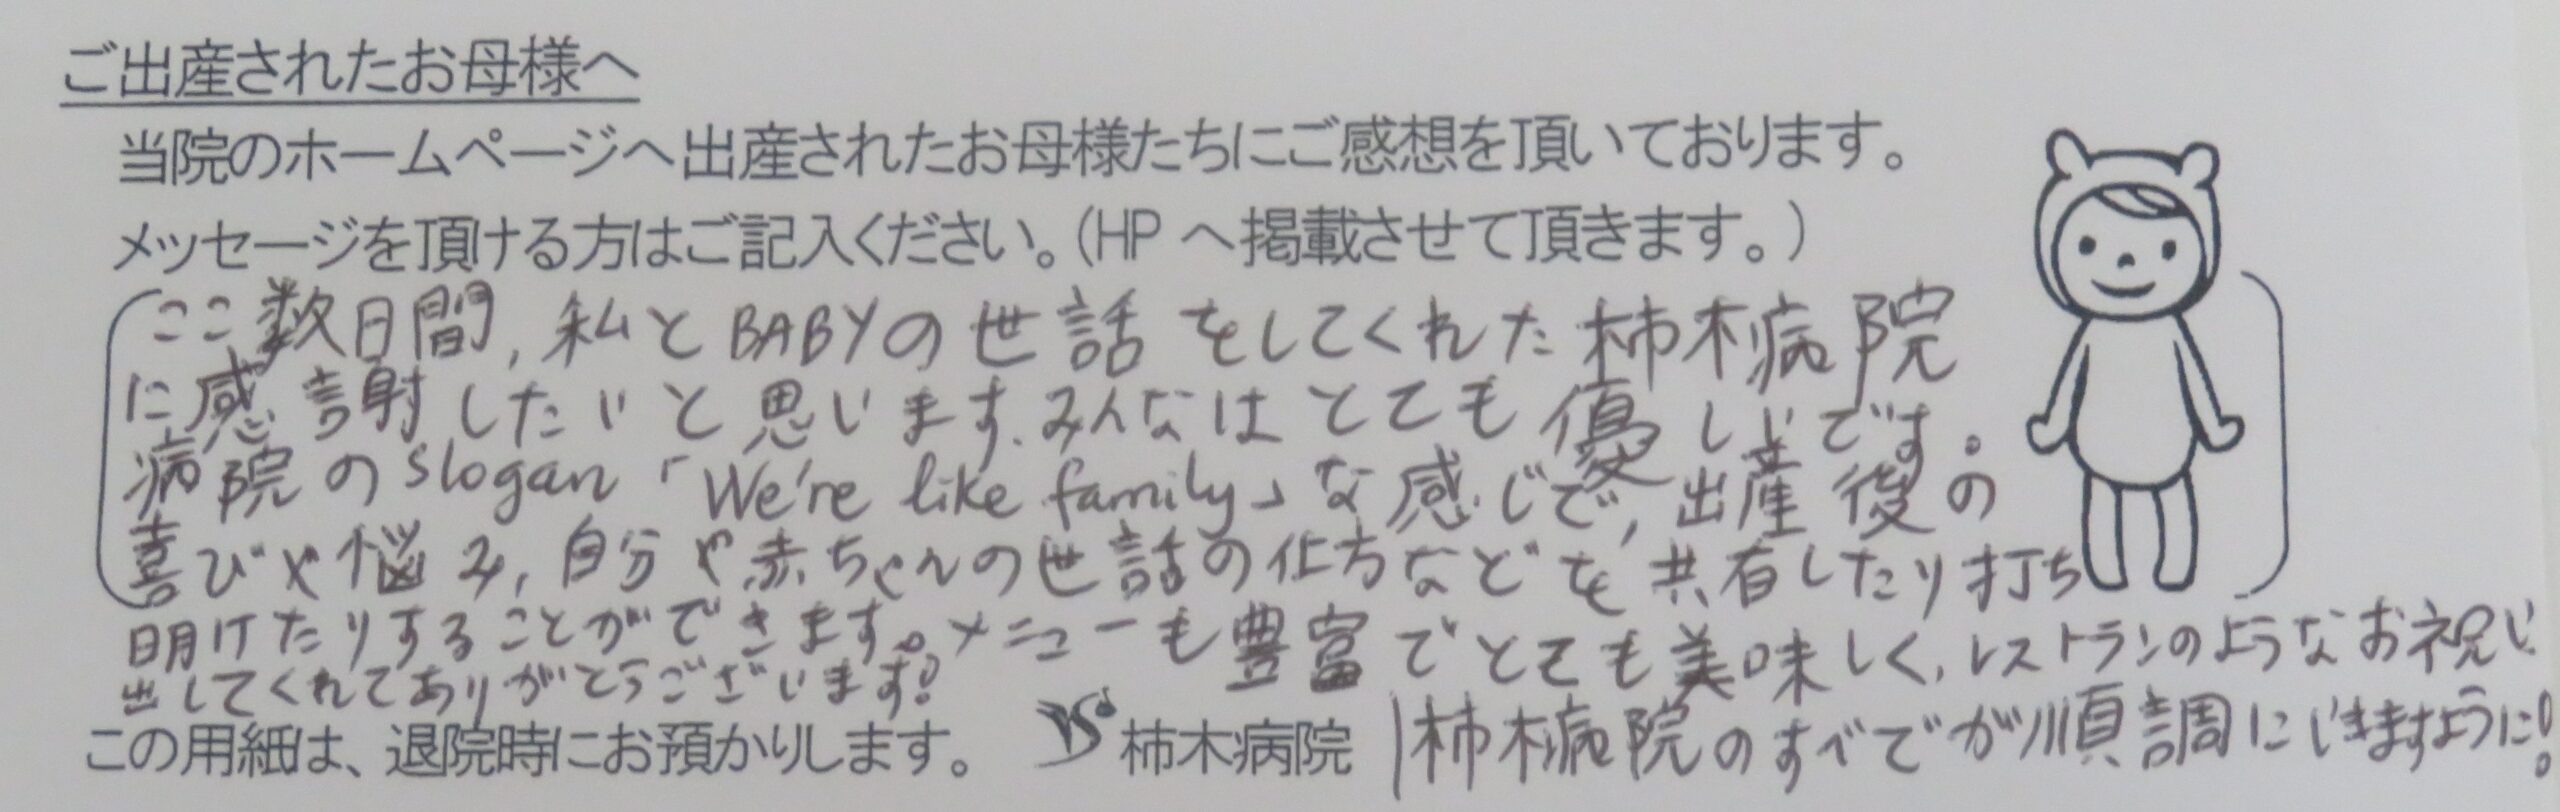 ご出産されたお母様へ
当院のホームページへ出産されたお母様たちにご感想を頂いております。
メッセージを頂ける方はご記入ください。(HP へ掲載させて頂きます。)
ここ数日間, 私とBABYの世話をしてくれた柿木病院
に感謝したいと思います.みんなはとても優しいです。
病院のslogan「We're like family」な感じで, 出産後の
喜びや悩み, 自分や赤ちゃんの世話の仕方などを共有したり打ち
明けたりすることができます。メニューも豊富でとても美味しく, レストランのようなお祝い
出してくれてありがとうございます!
この用紙は、退院時にお預かりします。 柿木病院
柿木病院のすべてが順調にいきますように!